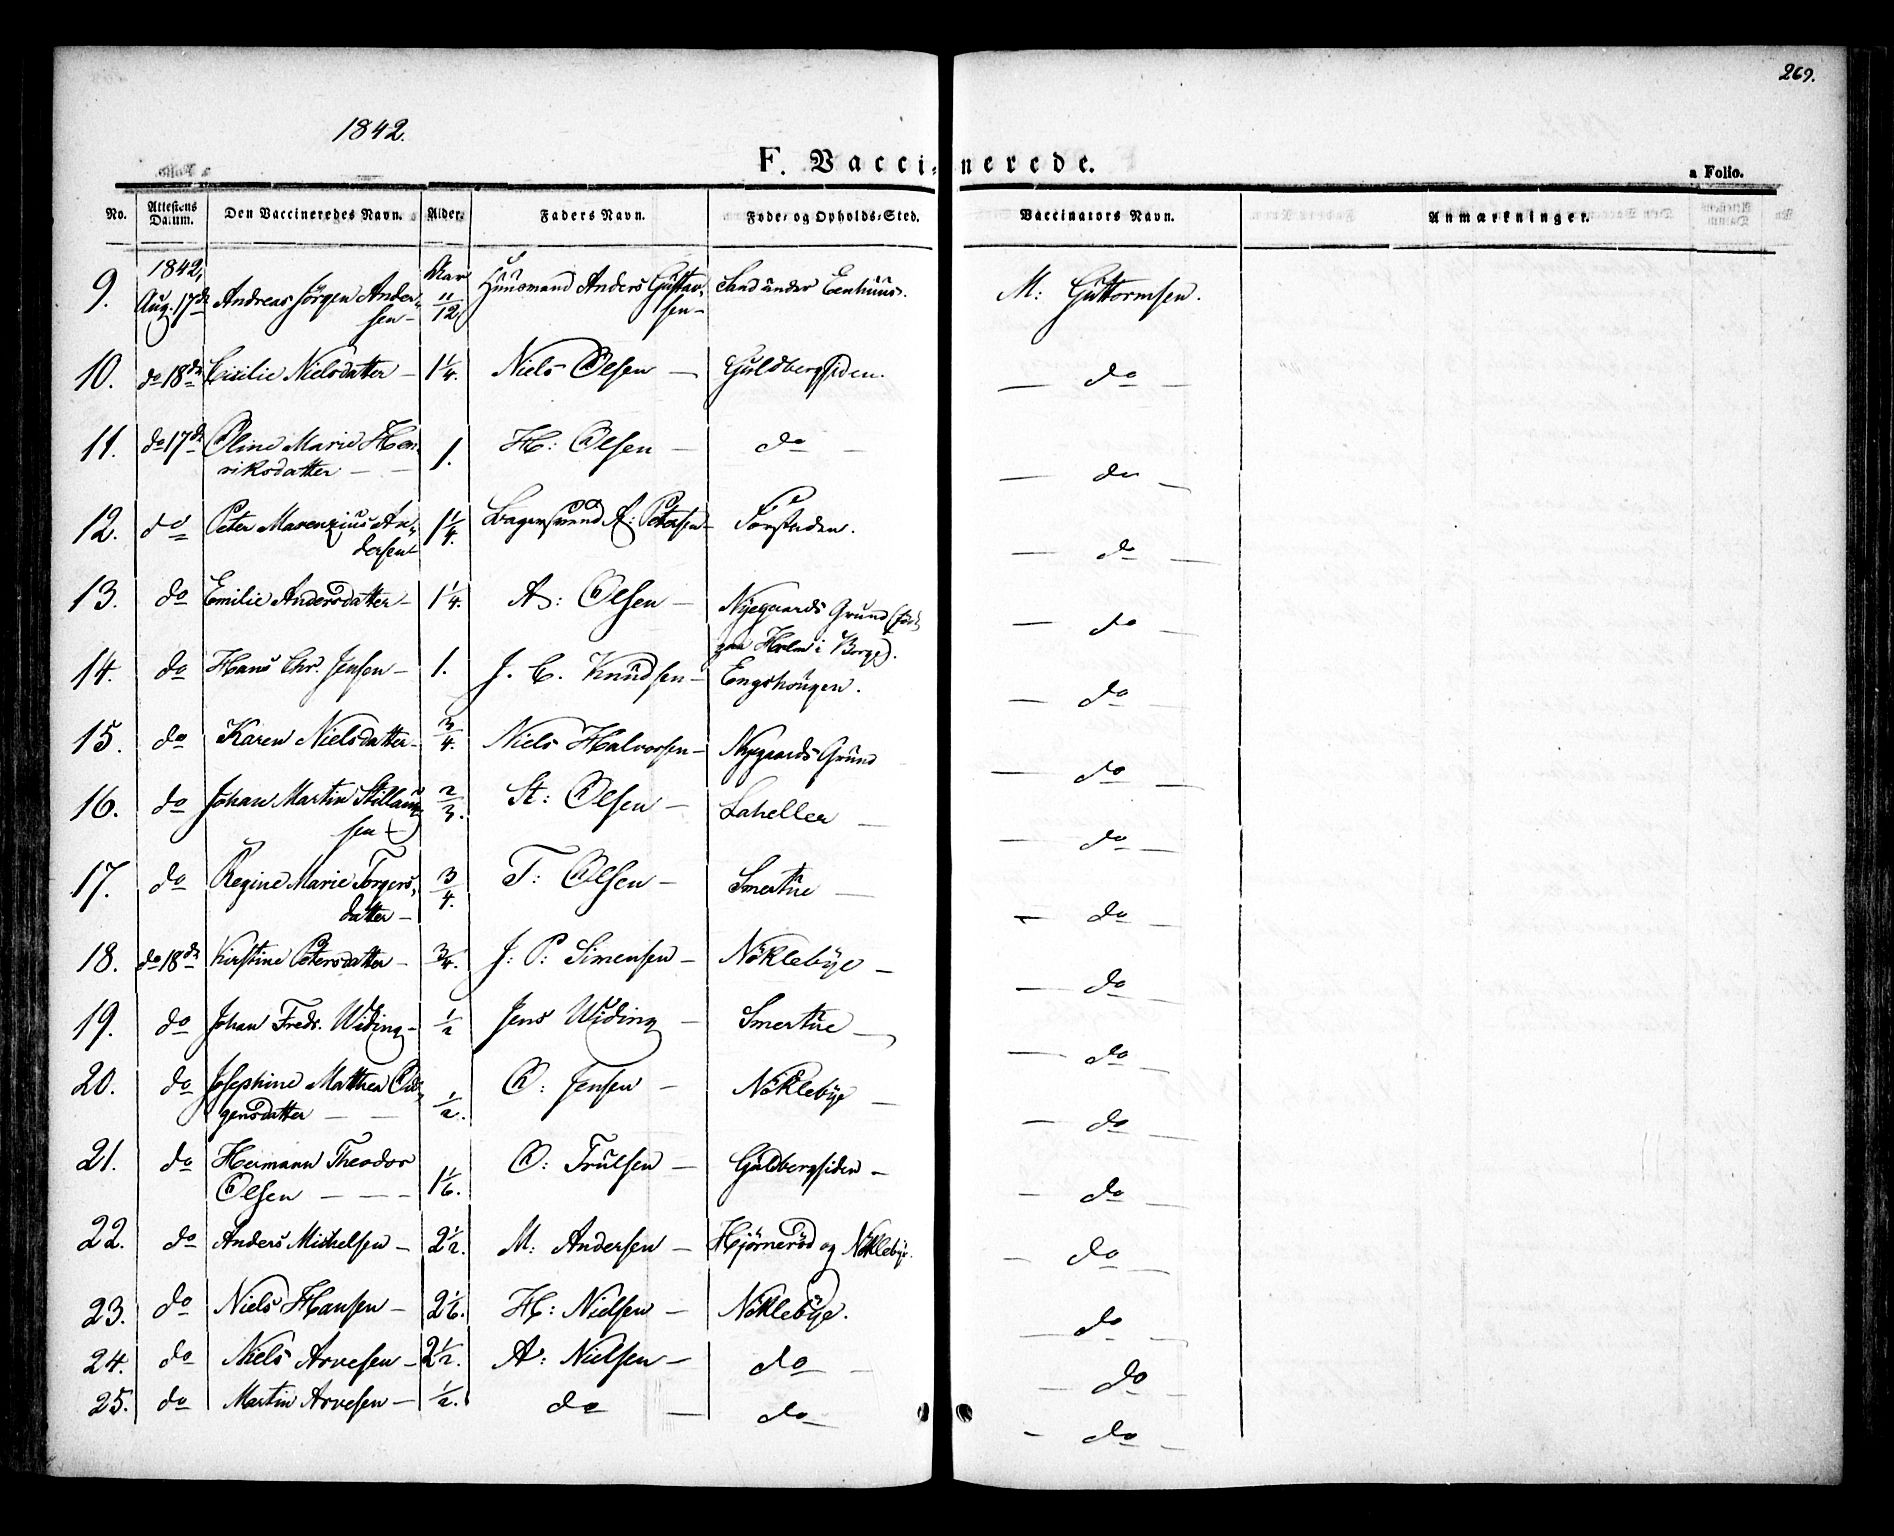 269.
1842.
F. Vaccinerede.
a Folio.
No. Attestens Datum. Den Vaccineredes Navn. Alder. Faders Navn. Føde- og Opholds-Sted. Vaccinators Navn. Anmærkninger.
9. 1842, Aug. 17de Andreas Jörgen Andersen - Aar 11/12 Huusmand Anders Gustavsen - Sand under Eenhuus. M: Guttormsen.
10. do 18de Cicilie Nielsdatter - 1 1/4. Niels Olsen - Guldbergsiden. - do -
11. do 17de Oline Marie Henriksdatter - - 1. H: Olsen - do - - do -
12. do Peter Marenzius Andersen - 1 1/4. A: Petersen - Forstaden. - do -
13. do Emilie Andersdatter - 1 1/4. A: Olsen - Nyegaards Grund (föd paa Holm i Borge). - do -
14. do Hans Chr. Jensen - 1. J. C. Knudsen - Engehougen. - do -
15. do Karen Nielsdatter - 3/4. Niels Halvorsen - Nyegaards Grund - do -
16. do Johan Martin Stillaugsen - 2/3. St: Olsen - Laheller - - do -
17. do Regine Marie Torgersdatter - 3/4. T: Olsen - Smertue - - do -
18. do 18de Kirstine Petersdatter - 3/4. J: P: Simensen - Nöklebye - - do -
19. do Johan Freds. Widing - 1/2 Jens Widing - Smertue - - do -
20. do Josephine Mathea Ougensdatter - - 1/2. O: Jensen - Nöklebye - - do -
21. do Hermann Theodor Olsen - - - 1 1/6. O: Trulsen - Guldbergsiden - - do -
22. do Anders Michelsen - 2 1/2. M: Andersen - Hjörneröd og Nöklebye. - do -
23. do Niels Hansen - 2 1/6. H: Nielsen - Nöklebye. - do -
24. do Niels Arvesen - 2 1/2. A: Nielsen - do - - do -
25. do Martin Arvesen - 1/2. do - do - - do -